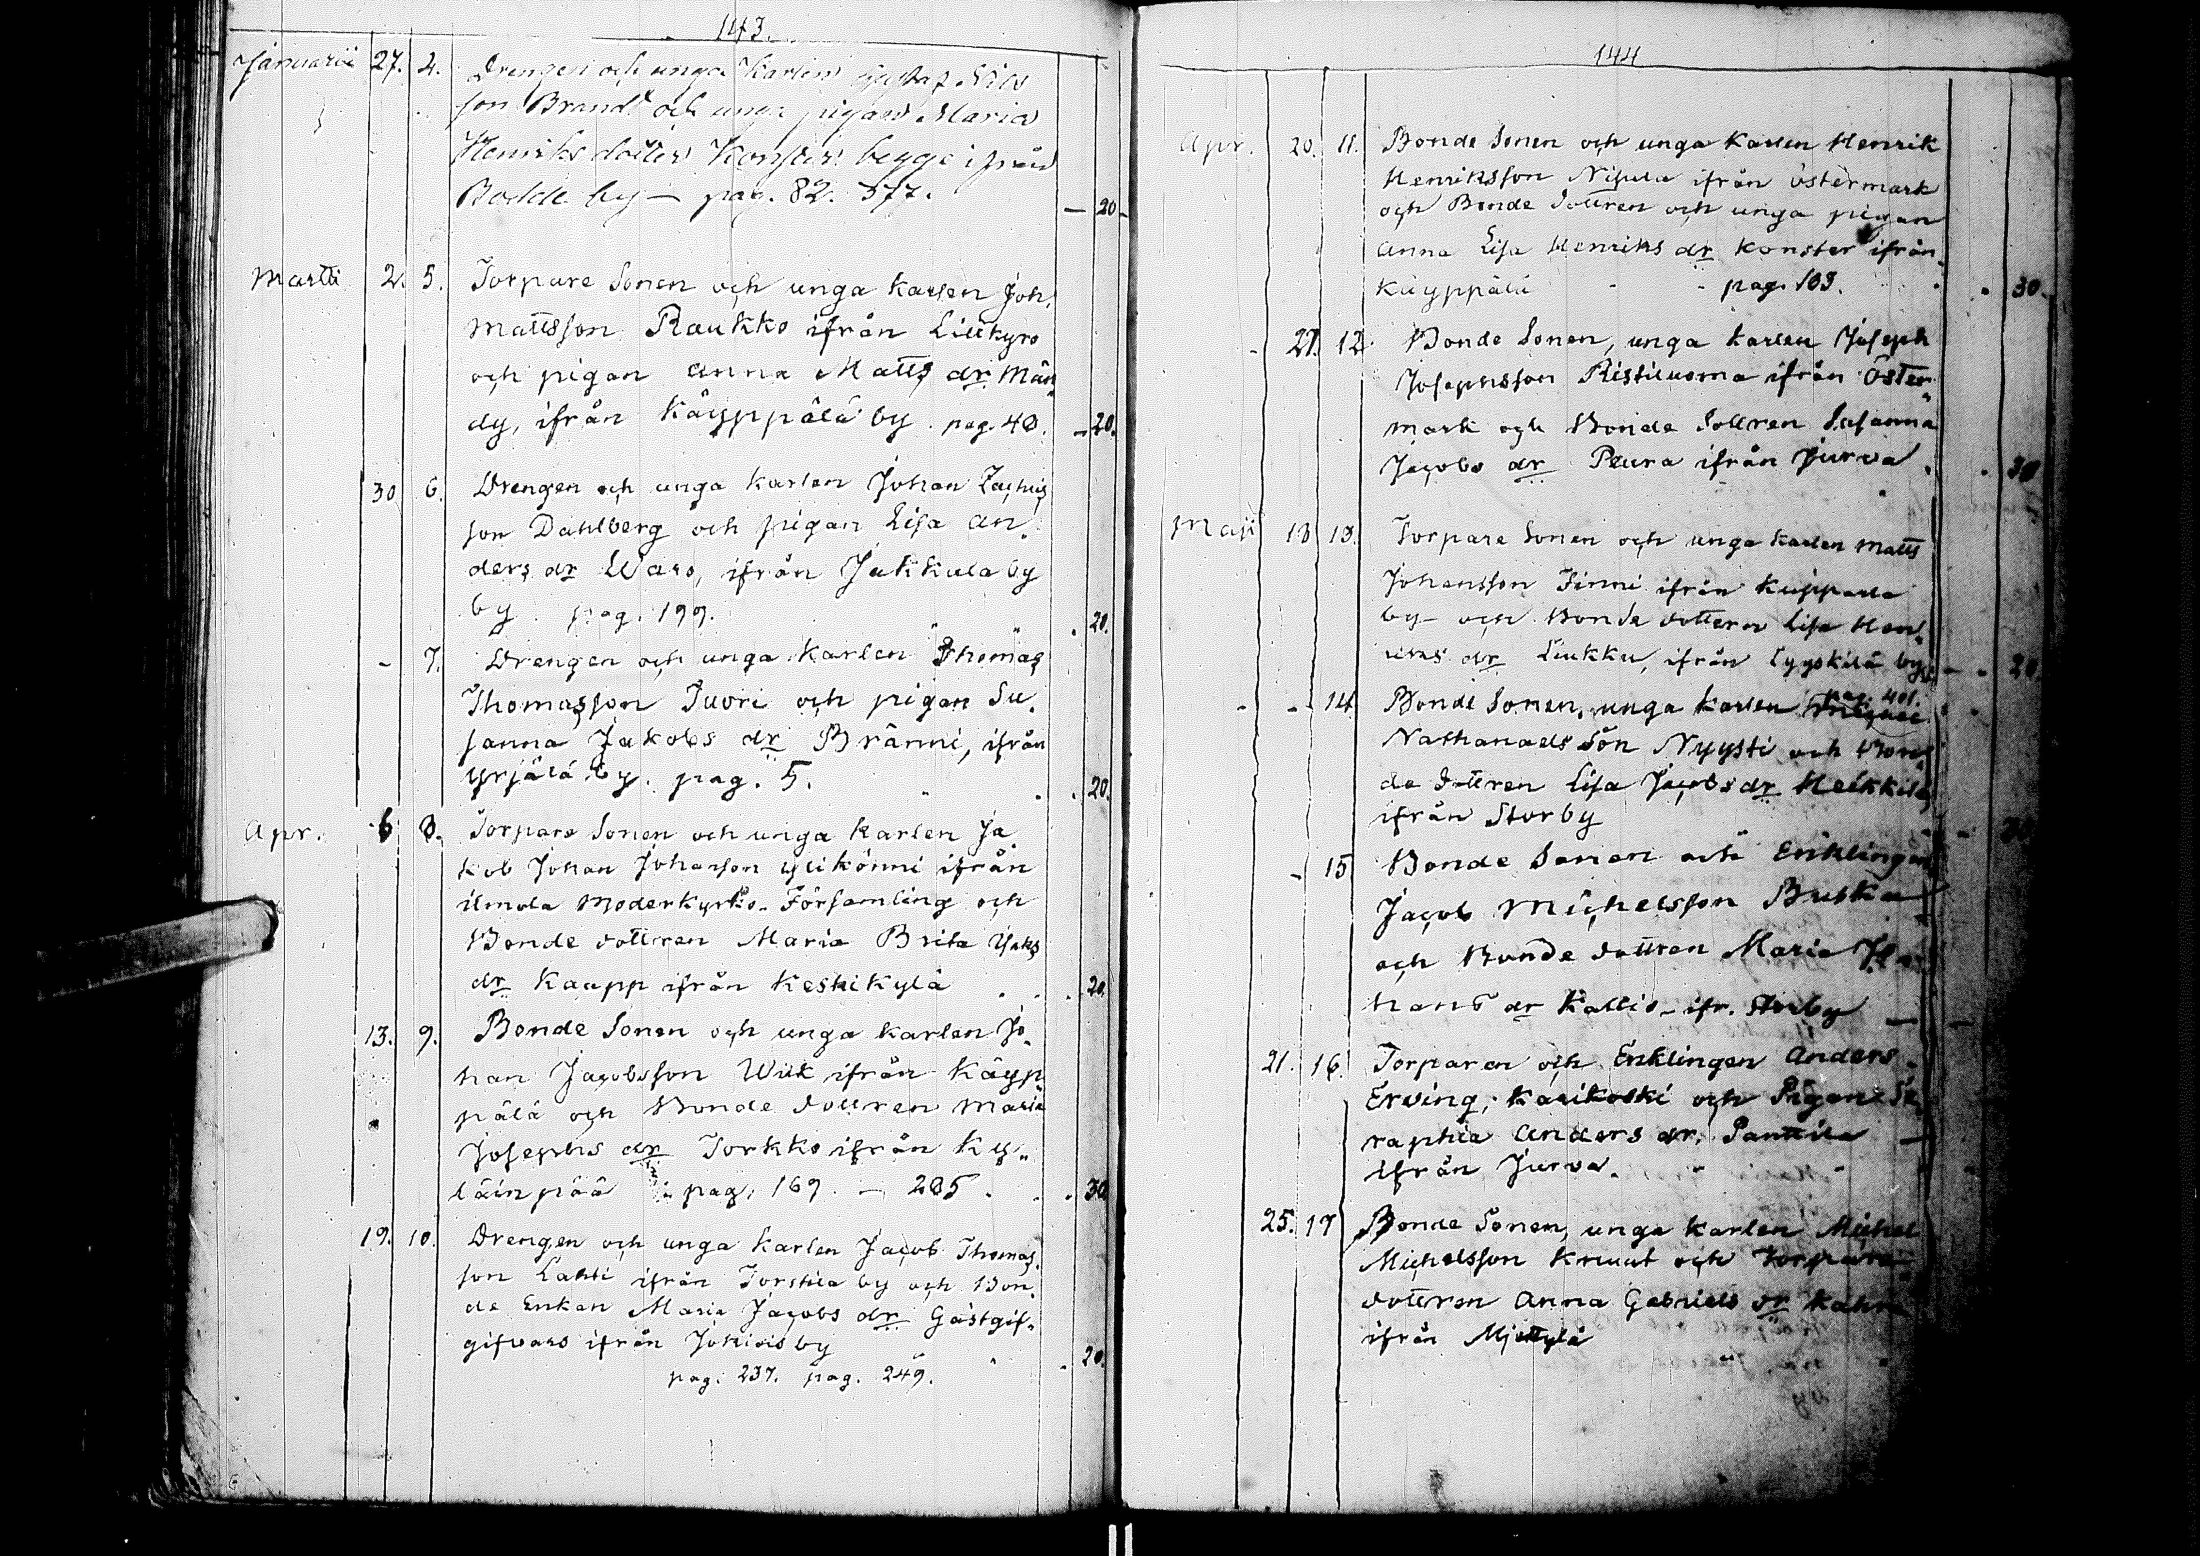 143.
Januarii 27. 4. Drengen och unga Karlen Gustaf Nils
son Brandt och unga pigan Maria
Henriks dotter Konster begge ifrån
Bodde by — pag. 82. 577. — 20 –
Martii 2. 5. Torpare Sonen och unga Karlen Joh.
Mattsson Raukko ifrån Lillkyro
och pigan Anna Matts dr Män
dy, ifrån Käyppälä by. pag. 40. – 20.
30 6. Drengen och unga Karlen Johan Zachris
son Dahlberg och pigan Lisa An
ders dr Wars, ifrån Jakkula by
by. pag. 199. 20.
– 7. Drengen och unga Karlen Thomas
Thomasson Juori och pigan Su
sanna Jakobs dr Bränni, ifrån
Yrjälä by. pag. 5. 20.
Apr. 6 8. Torpare Sonen och unga Karlen Ja
kob Johan Johansson Ylikönni ifrån
ilmola Moderkyrko Församling och
Bonde dottren Maria Brita Isaks
dr Kaupp ifrån Keskikylä 20.
13. 9. Bonde Sonen och unga Karlen Jo
han Jacobsson Wiik ifrån Käyp
pälä och Bonde dottren Maria
Josephs dr Torkko ifrån Ky
läinpää pag. 169. — 285. 30
19. 10. Drengen och unga Karlen Jacob Thomas
son Lahti ifrån Torstila by och Bon
de Enkan Maria Jacobs dr Gästgif
gifvars ifrån Jokisisby 20.
pag. 237. pag. 249.
144
Apr. 20. 11. Bonde Sonen och unga Karlen Henrik
Henriksson Nisula ifrån Östermark
och Bonde Dottren och unga pigan
Anna Lisa Henriks dr Konster ifrån
Käyppälä pag. 103. 30.
27. 12. Bonde Sonen, unga Karlen Joseph
Josephsson Ristiluoma ifrån Öster
mark och Bonde Dottren Susanna
Jacobs dr Peura ifrån Jurva. 30
Maji 18 13. Torpare Sonen och unga Karlen Matts
Johansson Finni ifrån Kuippala
by och Bonde dottern Lisa Hen
riks dr Liukku, ifrån Lyyskilä by 20
pag. 401.
– 14. Bonde Sonen, unga Karlen
Nathanaels Son Nyysti och Bon
de Dottren Lisa Jacobs dr Heikkilä
ifrån Storby
– 15 Bonde Sonen och Enklingen
Jacob Michelsson Buska
och Bonde dottren Maria Jo
hans dr Kallio ifr. Storby —
21. 16. Torparen och Enklingen Anders
Erving, Karikoski och Pigan Se
raphia Anders dr. Panttila —
ifrån Jurva.
25. 17 Bonde Sonen, unga Karlen Michel
Michelsson Kruut och Torpare
dottren Anna Gabriels dr
ifrån